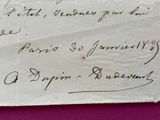 l'état, vendues par lui
de.
Paris 30 Janvier 18
A Dupin-Dudevant